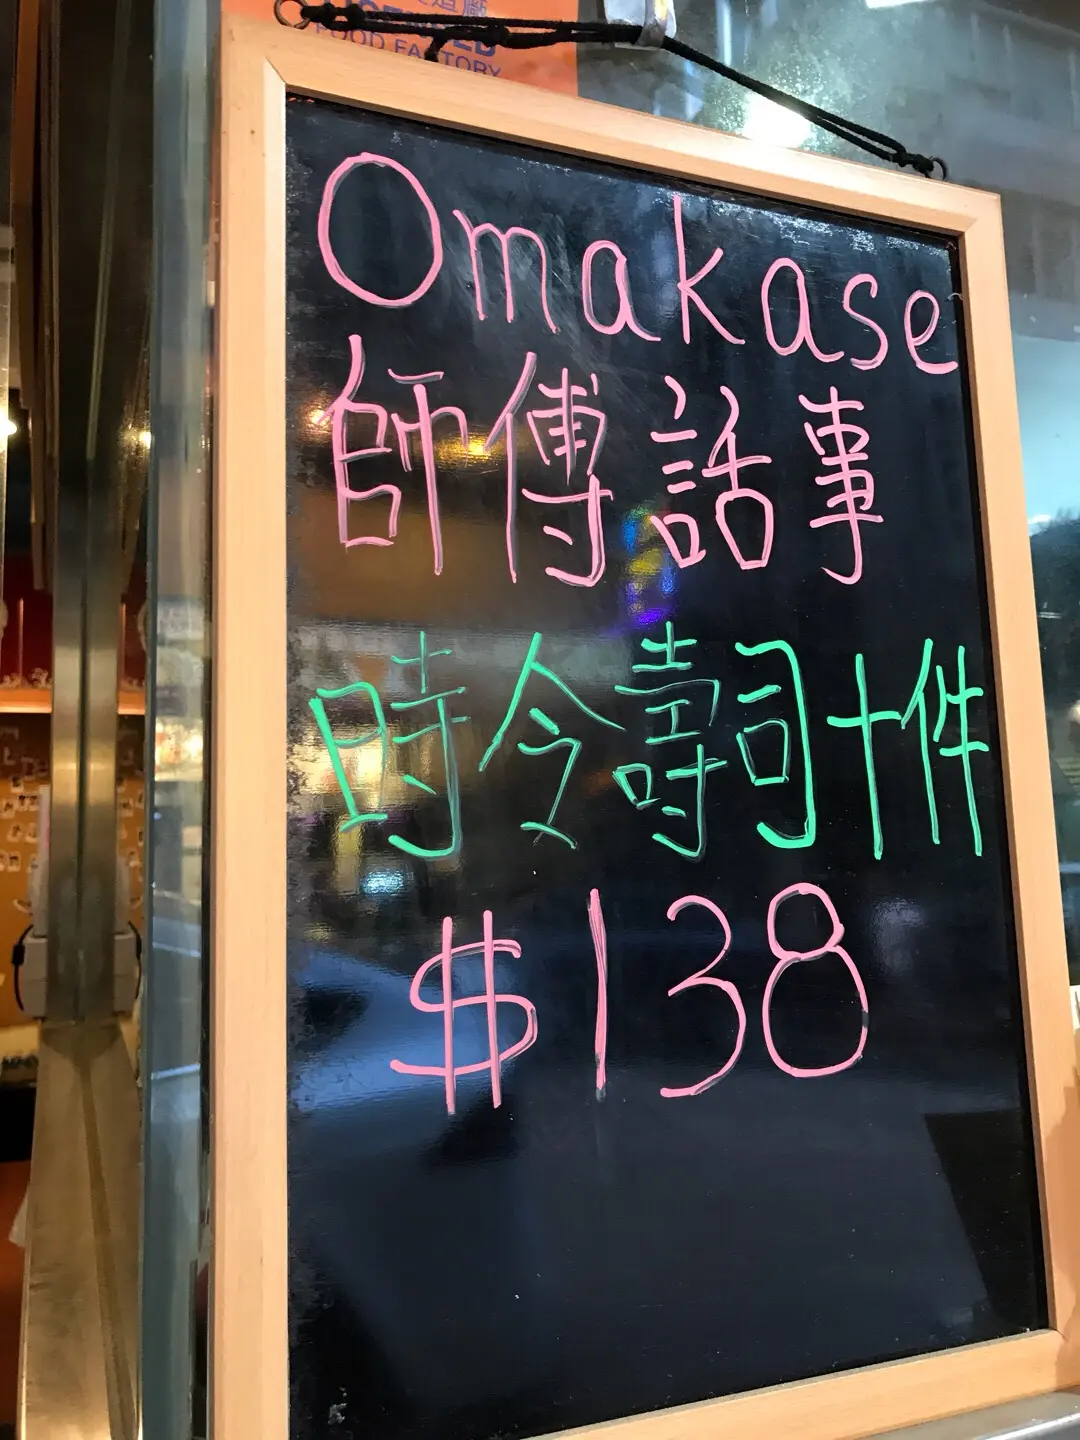 FOOD FACTORY
Omakase
師傅話事
時令壽司十件
$138